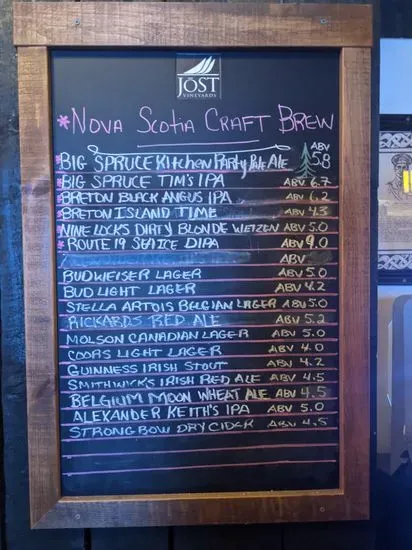 JOST
VINEYARDS
*NOVA SCOTIA CRAFT BREW
*BIG SPRUCE KITCHEN PARTY PALE ALE ABV 5.8
*BIG SPRUCE TIM'S IPA ABV 6.7
*BRETON BLACK ANGUS IPA ABV 6.2
*BRETON ISLAND TIME ABV 4.3
*NINE LOCKS DIRTY BLONDE WEIZEN ABV 5.0
*ROUTE 19 SEA ICE DIPA ABV 9.0
ABV
BUDWEISER LAGER ABV 5.0
BUD LIGHT LAGER ABV 4.2
STELLA ARTOIS BELGIAN LAGER ABV 5.0
RICKARDS RED ALE ABV 5.2
MOLSON CANADIAN LAGER ABV 5.0
COORS LIGHT LAGER ABV 4.0
GUINNESS IRISH STOUT ABV 4.2
SMITHWICK'S IRISH RED ALE ABV 4.5
BELGIUM MOON WHEAT ALE ABV 4.5
ALEXANDER KEITH'S IPA ABV 5.0
STRONGBOW DRY CIDER ABV 4.5